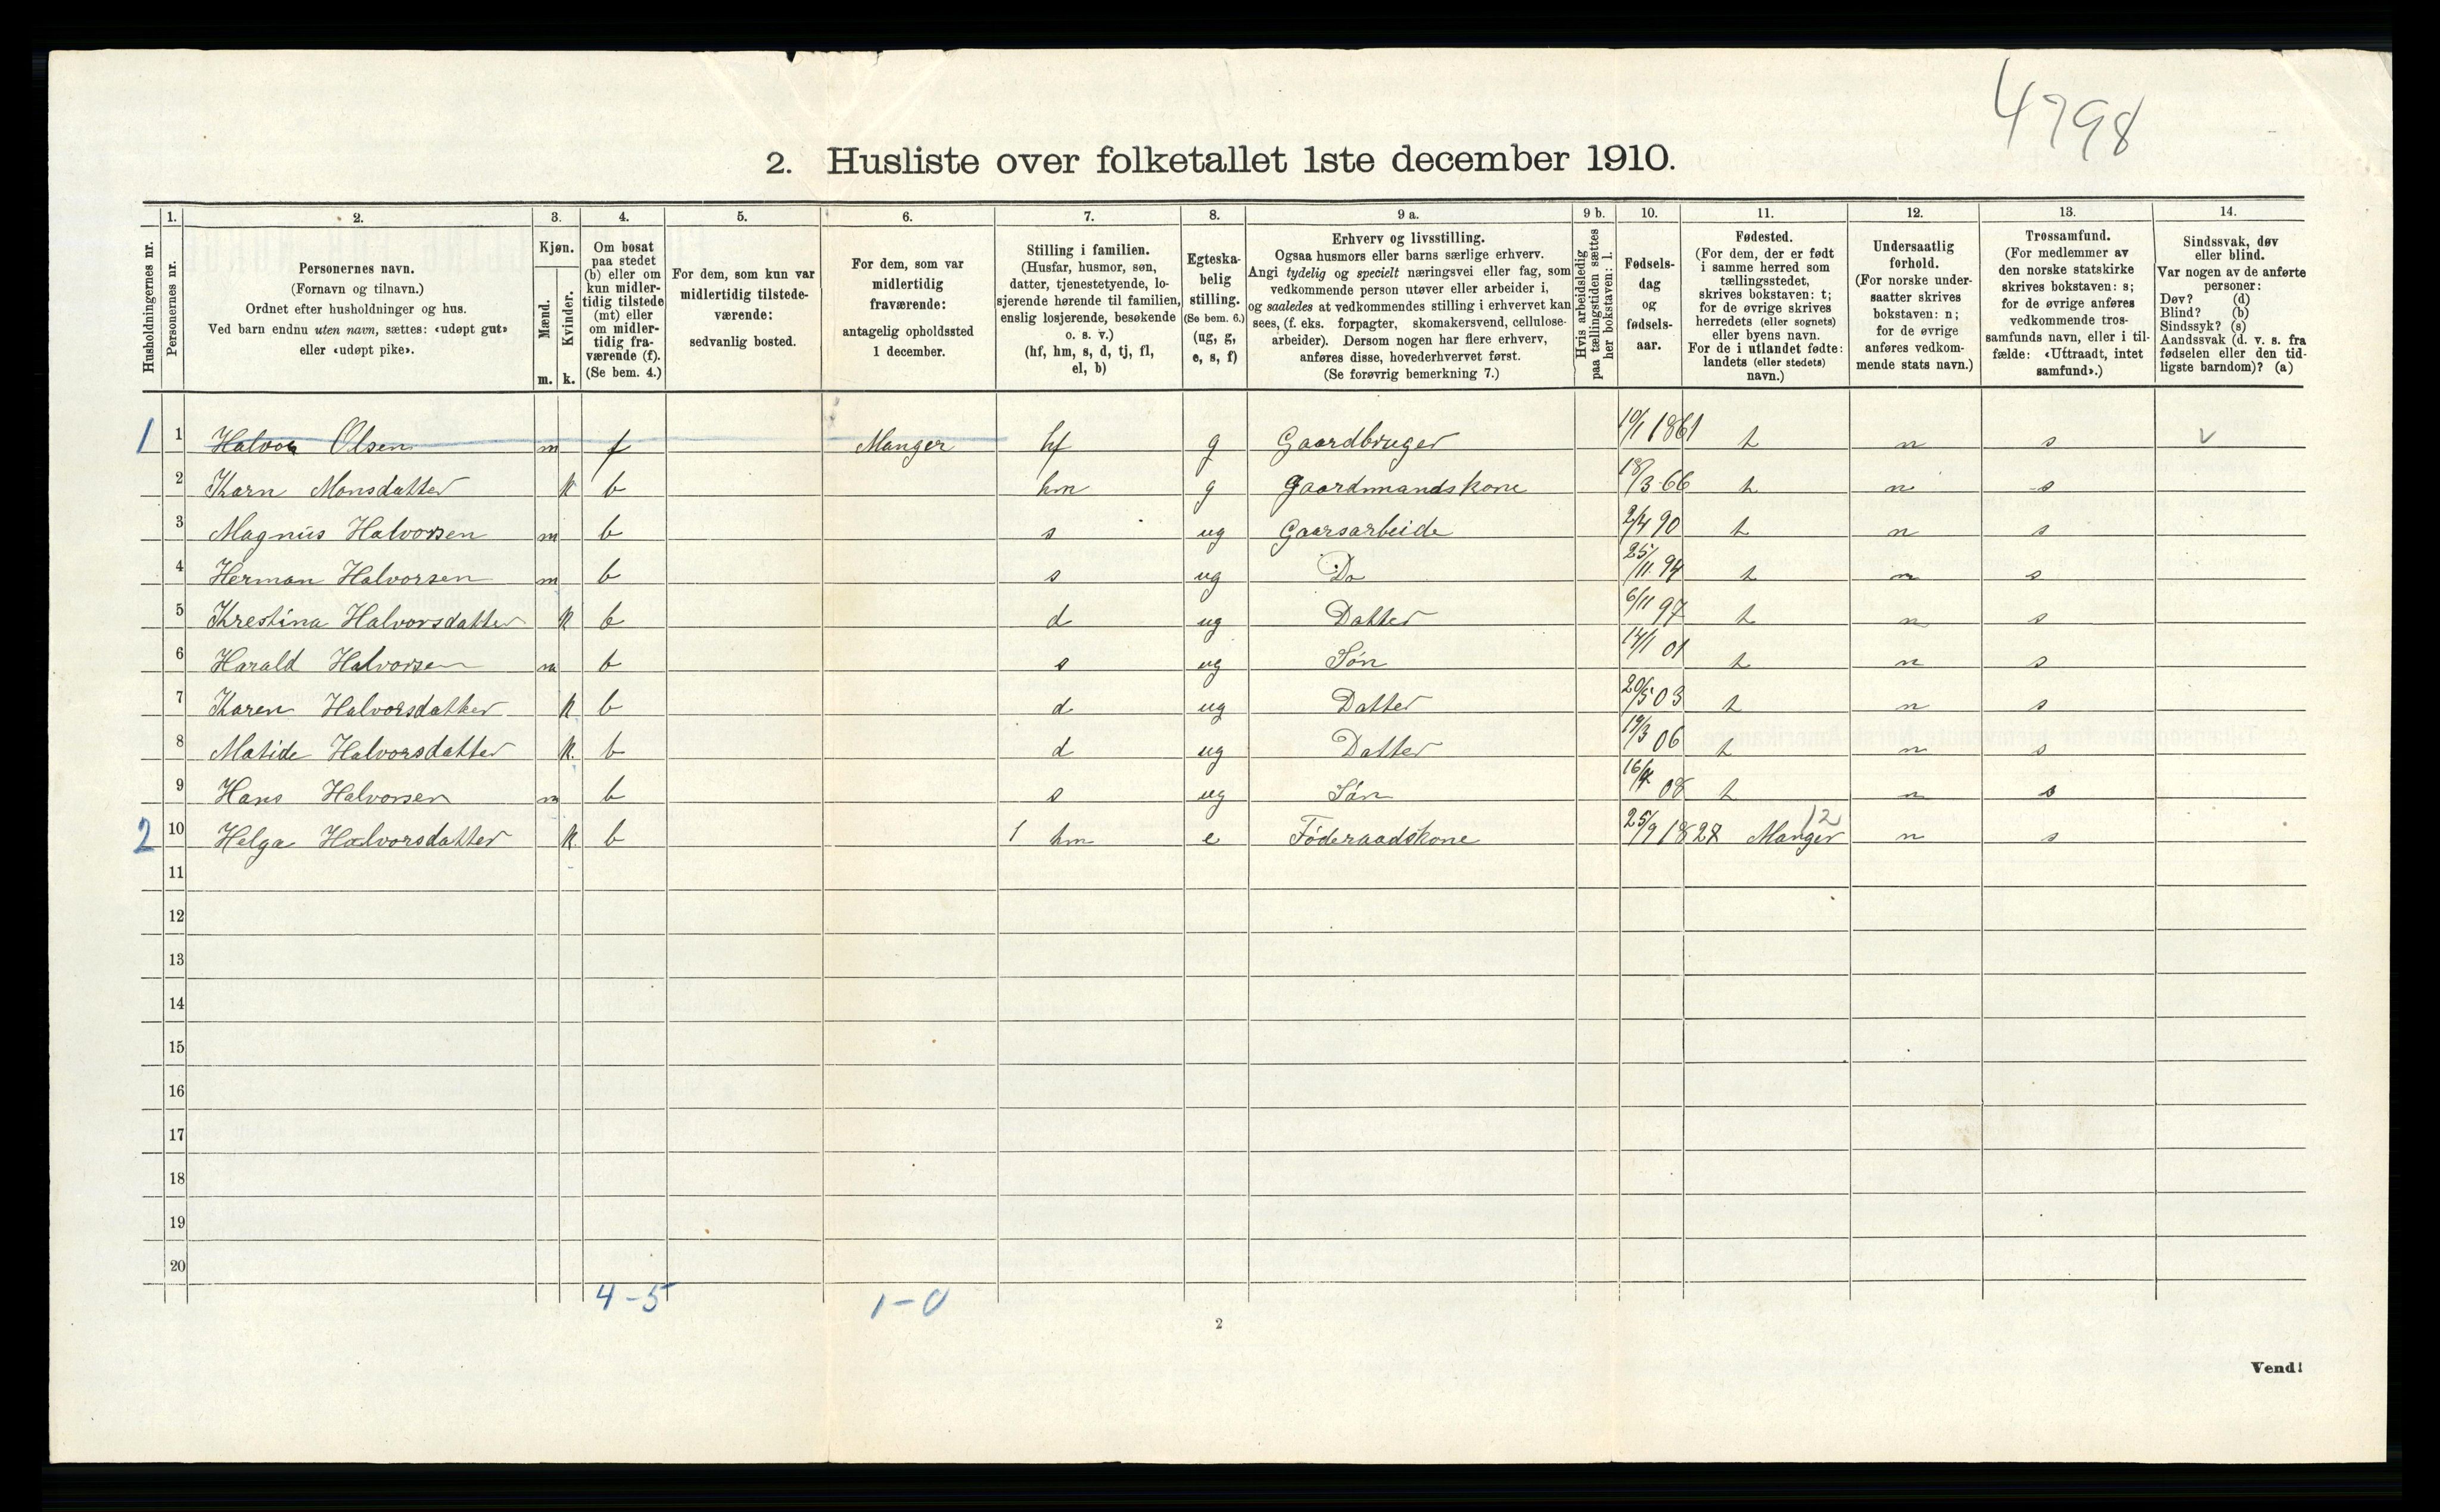 4798
2. Husliste over folketallet 1ste december 1910.
Husholdningernes nr.
1. Personernes nr.
2. Personernes navn. (Fornavn og tilnavn.) Ordnet efter husholdninger og hus. Ved barn endnu uten navn, sættes: «udøpt gut» eller «udøpt pike».
3. Kjøn. Mænd. m. Kvinder. k.
4. Om bosat paa stedet (b) eller om kun midlertidig tilstede (mt) eller om midlertidig fraværende (f). (Se bem. 4.)
5. For dem, som kun var midlertidig tilstedeværende: sedvanlig bosted.
6. For dem, som var midlertidig fraværende: antagelig opholdssted 1 december.
7. Stilling i familien. (Husfar, husmor, søn, datter, tjenestetyende, losjerende hørende til familien, enslig losjerende, besøkende o. s. v.) (hf, hm, s, d, tj, fl, el, b)
8. Egteskabelig stilling. (Se bem. 6.) (ug, g, e, s, f)
9 a. Erhverv og livsstilling. Ogsaa husmors eller barns særlige erhverv. Angi tydelig og specielt næringsvei eller fag, som vedkommende person utøver eller arbeider i, og saaledes at vedkommendes stilling i erhvervet kan sees, (f. eks. forpagter, skomakersvend, cellulosearbeider). Dersom nogen har flere erhverv, anføres disse, hovederhvervet først. (Se forøvrig bemerkning 7.)
9 b. Hvis arbeidsledig paa tællingstiden sættes her bokstaven: l.
10. Fødselsdag og fødselsaar.
11. Fødested. (For dem, der er født i samme herred som tællingsstedet, skrives bokstaven: t; for de øvrige skrives herredets (eller sognets) eller byens navn. For de i utlandet fødte: landets (eller stedets) navn.)
12. Undersaatlig forhold. (For norske undersaatter skrives bokstaven: n; for de øvrige anføres vedkommende stats navn.)
13. Trossamfund. (For medlemmer av den norske statskirke skrives bokstaven: s; for de øvrige anføres vedkommende trossamfunds navn, eller i tilfælde: «Uttraadt, intet samfund».)
14. Sindssvak, døv eller blind. Var nogen av de anførte personer: Døv? (d) Blind? (b) Sindssyk? (s) Aandssvak (d. v. s. fra fødselen eller den tidligste barndom)? (a)
1 1 Halvor Olsen m f Manger hf g Gaardbruger 10/1 1861 t n s v
2 Karn Monsdatter k b hm g Gaardmandskone 18/3 66 t n s
3 Magnus Halvorsen m b s ug Gaarsarbeide 2/4 90 t n s
4 Herman Halvorsen m b s ug Do 25/11 94 t n s
5 Krestina Halvorsdatter k b d ug Datter 6/11 97 t n s
6 Harald Halvorsen m b s ug Søn 14/1 01 t n s
7 Karen Halvorsdatter k b d ug Datter 20/5 03 t n s
8 Matide Halvorsdatter k. b d ug Datter 19/3 06 t n s
9 Hans Halvorsen m b s ug Søn 16/4 08 t n s
2 10 Helga Halvorsdatter k. b 1 hm e Föderaadskone 25/9 1828 Manger 12 n s
11
12
13
14
15
16
17
18
19
20
4-5 1-0
2
Vend!